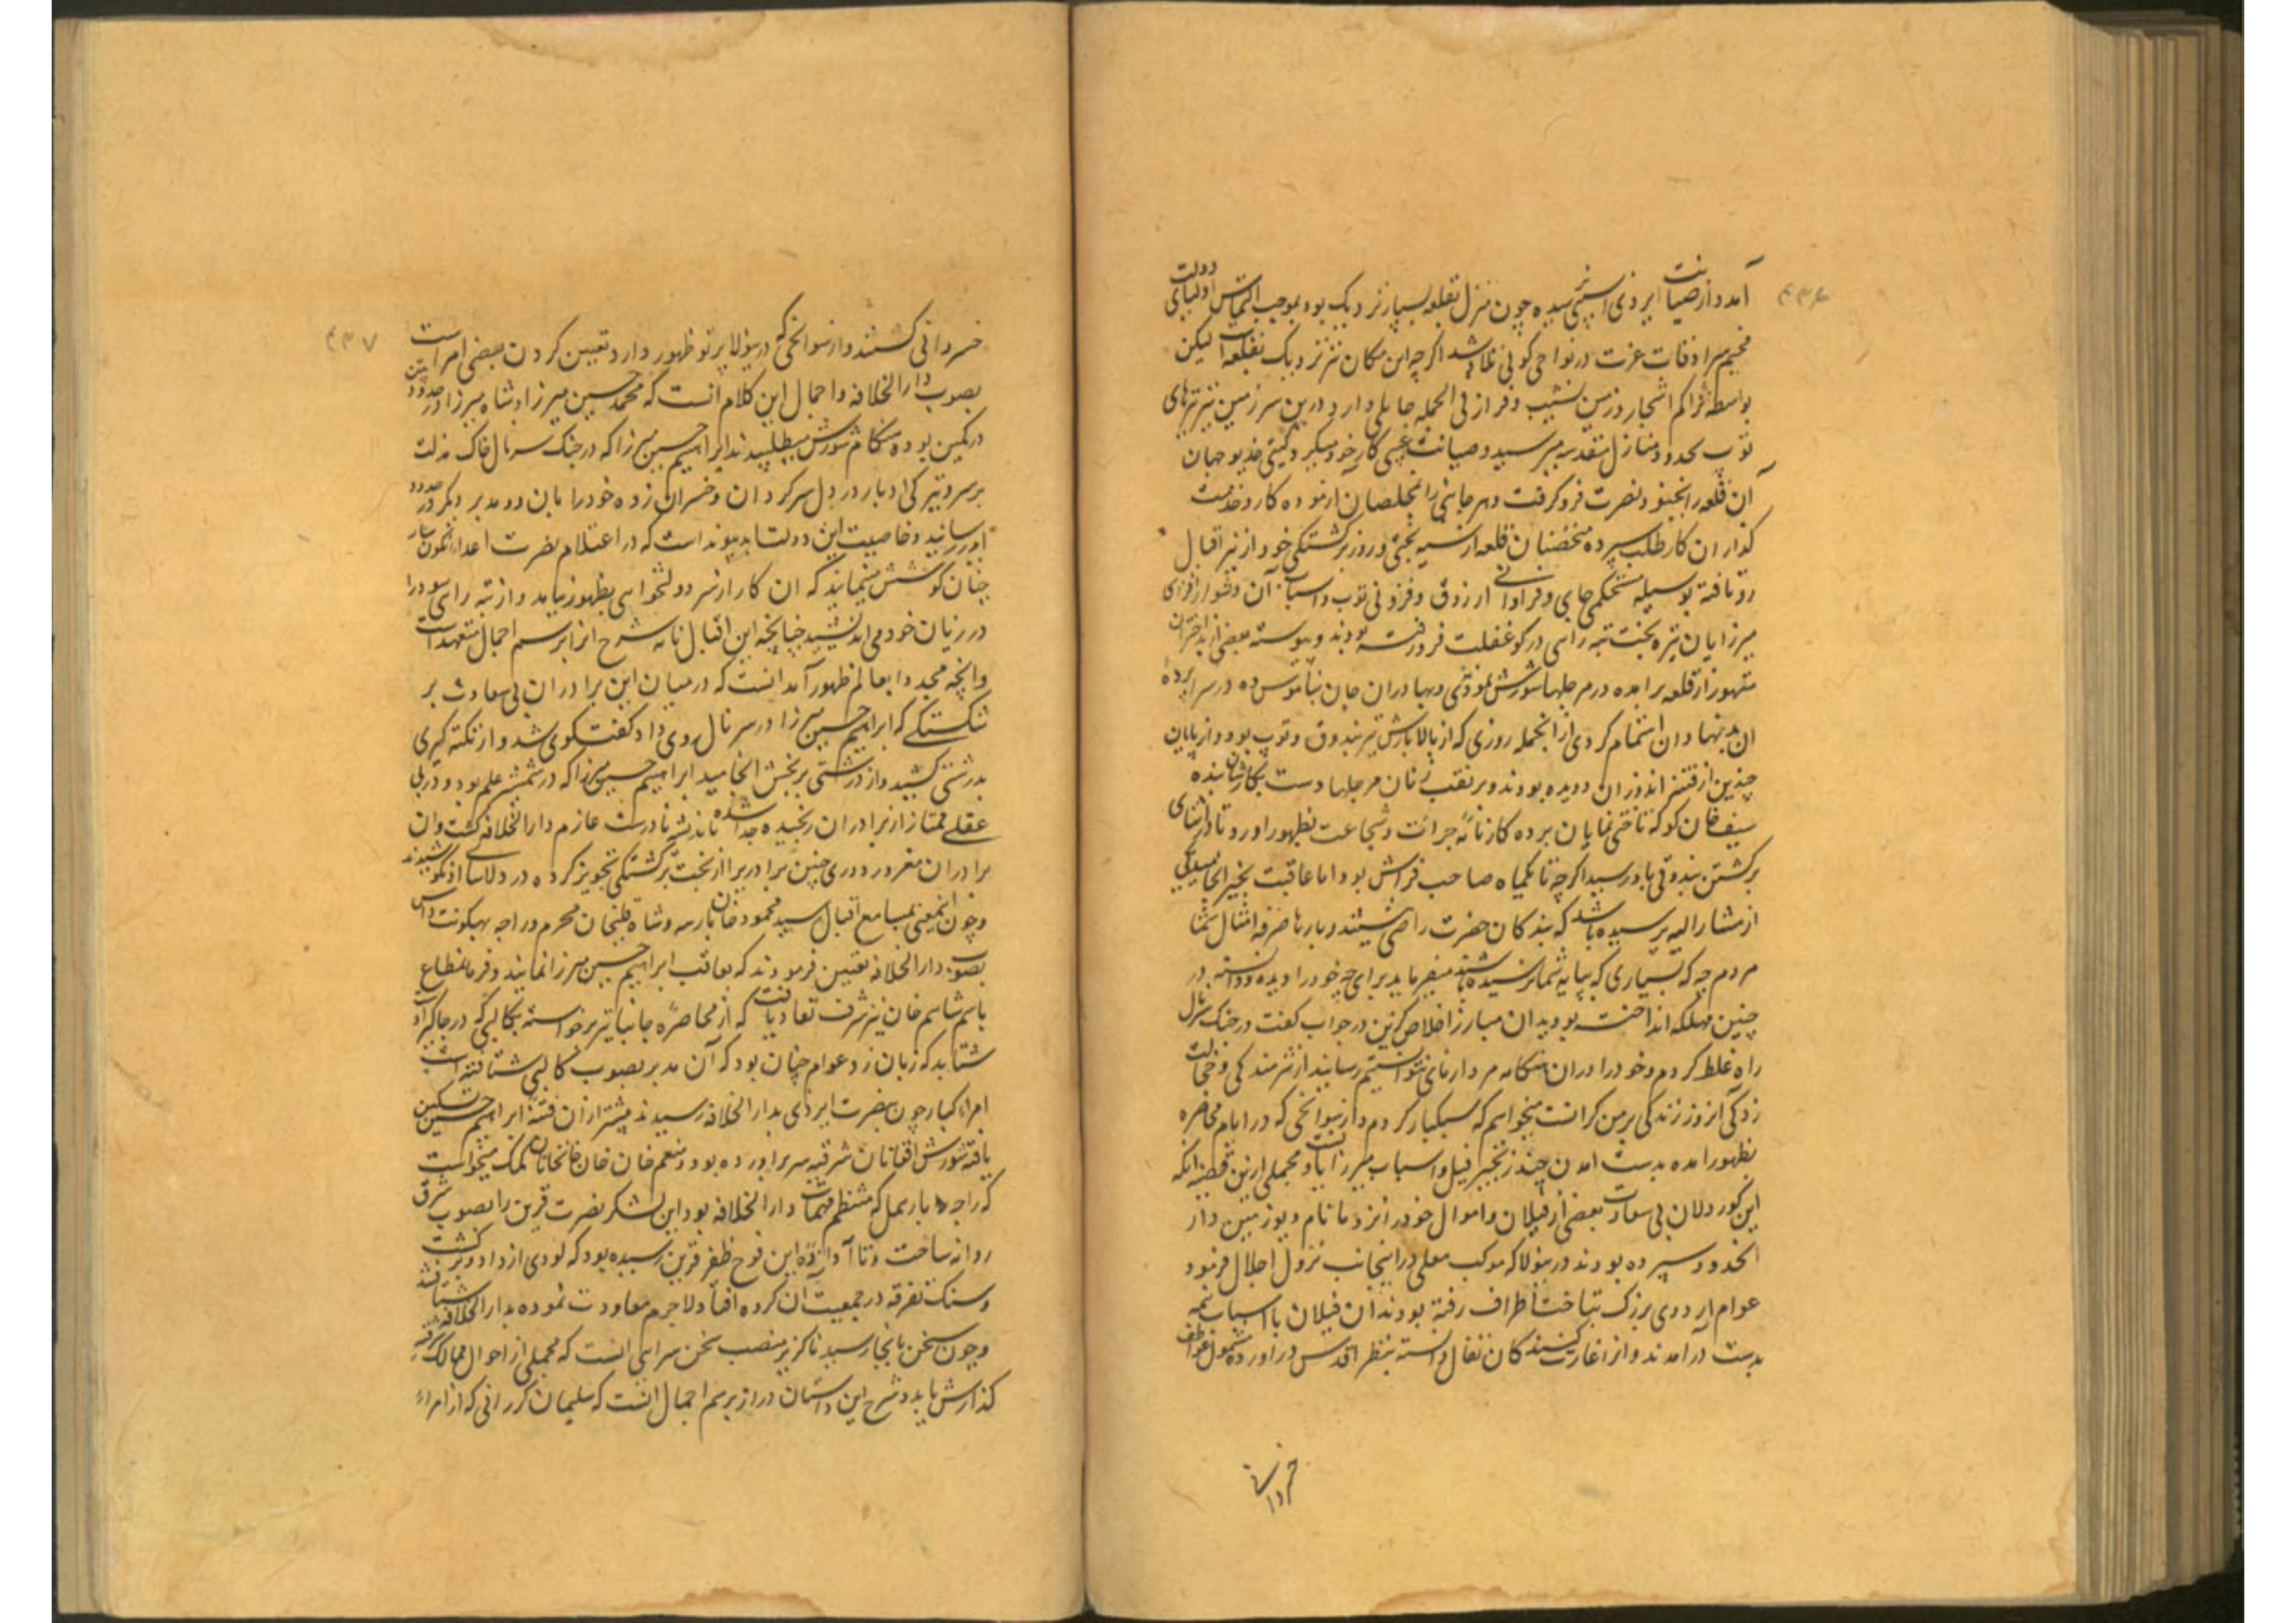 ۴۳۶
آمد و از صیانت ایزدی آسیبی نرسیده چون منزل بقلعه بسیار نزدیک بود بموجب التماس اولیای دولت
مخیم سرادقات عزت در نواحی کوپی تلاو شد اگرچه این مکان نیز نزدیک بقلعه است لیکن
بواسطه تراکم اشجار و زمین نشیب و فراز فی الجمله حایلی دارد و درین سرزمین نیز تیرهای
توپ بحدود منازل مقدسه میرسید و صیانت غیبی کار خود میکرد گیتی خدیو جهان
آن قلعه را بجنود نصرت فرو گرفت و هر جانبی را بمخلصان آزموده کار و خدمت
گذاران کارطلب سپرده متحصنان قلعه از سیه بختی و روز برگشتگی خود از نیر اقبال
رو تافته بوسیله مستحکمی جای و فراوانی ارزوق و فزونی توپ و اسباب آن
میرزایان تیره بخت تبه رای در کو غفلت فرو رفته بودند و پیوسته بعضی از بداختران
متهور از قلعه برآمده در مرجلها شورش نمودندی و بهادران جان بناموس ده در سر
آن بدنهادان اهتمام کردی از انجمله روزی که از بالا بارش تیر بندوق و توپ بود و از پایان
چندین از فتنه اندوزان دویده بودند و بر نقب زنان مرجلها دست بکار
سیف خان کوکه تاختی نمایان برده کارنامه جرات و شجاعت بظهور آورد و تا در اثنای
برگشتن بندوقی باو رسید اگرچه تا یکماه صاحب فراش بود اما عاقبت بخیر انجامید یکی
از مشارالیه پرسیده باشد که بندگان حضرت راضی نیستند و بارها صرفه امثال شما
مردم چه که بسیاری که بپایه شما نرسیده باشند میفرماید برای چه خود را دیده و دانسته در
چنین مهلکه انداخته بودید آن مبارز اخلاص گزین در جواب گفت در جنک سرنال
راه غلط کردم و خود را در ان هنکامه مردآزمای نتوانستم رسانید از شرمندگی و خجالت
زدگی آنروز زندگی بر من گرانست میخواهم که سبکبار کردم و از سوانحی که در ایام محاصره
بظهور آمده بدست آمدن چند زنجیر فیل و اسباب میرزایانست و مجملی ازین قضیه آنکه
این کوردلان بی سعادت بعضی از فیلان و اموال خود را نزد مانام دیو زمیندار
آنحدود سپرده بودند درینولا که موکب معلی در اینجانب نزول اجلال فرمود
عوام اردوی بزرک بتاخت اطراف رفته بودند آن فیلان با اسباب بقیه
بدست درآمدند و از غارت کنندگان تفال دانسته بنظر اقدس درآورده مشمول عواطف
خسروانی
۴۳۷
خسروانی گشتند و از سوانحی که درینولا پرتو ظهور دارد تعیین کردن بعضی امرا است
بصوب دارالخلافه و اجمال این کلام آنست که محمد حسین میرزا و شاه میرزا در حدود پتن
در کمین بوده هنکام شورش میطلبیدند ابراهیم حسین میرزا که در جنک سرنال خاک مذلت
بر سر و تیرگی ادبار در دل سرگردان و خسران زده خود را بان دو مدبر دیگر در حدود
رسانید و خاصیت این دولت ابدپیوند است که در اعتلام نصرت اعداء نگون سار
چنان کوشش مینمایند که آن کار از سر دولتخواهی بظهور نیاید و از تبه رایی سود را
در زیان خود می اندیشید چنانچه این اقبال نامه شرح آنرا برسم اجمال متعهد است
و انچه مجددا بعالم ظهور آمد آنست که در میان این برادران بی سعادت بر
شکستگی که ابراهیم حسین میرزا در سرنال روی داد گفتگوی شد و از نکته گیری
بدرشتی کشید و از درشتی برنجش انجامید ابراهیم حسین میرزا که در شمشیر علم بود و در بی
عقلی ممتاز از برادران رنجیده جدا شده باندیشه نادرست عازم دارالخلافه گشت و آن
برادران مغرور دوری چنین برادر را از بخت برگشتگی تجویز کرده در دلاسای او نکوشیدند
و چون اینمعنی بمسامع اقبال رسید سید محمود خان بارهه و شاه قلیخان محرم و راجه بهگونت داس
بصوب دارالخلافه تعیین فرمودند که تعاقب ابراهیم حسین میرزا نمایند و فرمانمطاع
باسم شاهم خان نیز شرف نفاذ یافت که از محاصره جانپانیر برخواسته بکالپی که در جاگیر اوست
شتابد که زبان زد عوام چنان بود که آن مدبر بصوب کالپی شتافته است
امراء کبار چون بنصرت ایزدی بدارالخلافه رسیدند پیشتر از ان فتنه ابراهیم حسین تسکین
یافته شورش افغانان شرقیه سر برآورده بود و منعم خان خان خانان کمک میخواست
که راجه بارهمل که منتظم مهمات دارالخلافه بود این لشکر نصرت قرین را بصوب شرق
روانه ساخت و تا آوازه این فوج ظفر قرین رسیده بود که لودی از داود برگشت
و سنک تفرقه در جمعیت آن کرده افتاد لاجرم معاودت نموده بدارالخلافه شتافتند
و چون سخن باینجا رسید ناگزیر منصب سخن سرایی آنست که مجملی از احوال ممالک شرقیه
گذارش یابد و شرح این داستان دراز برسم اجمال آنست که سلیمان کررانی که از امراء